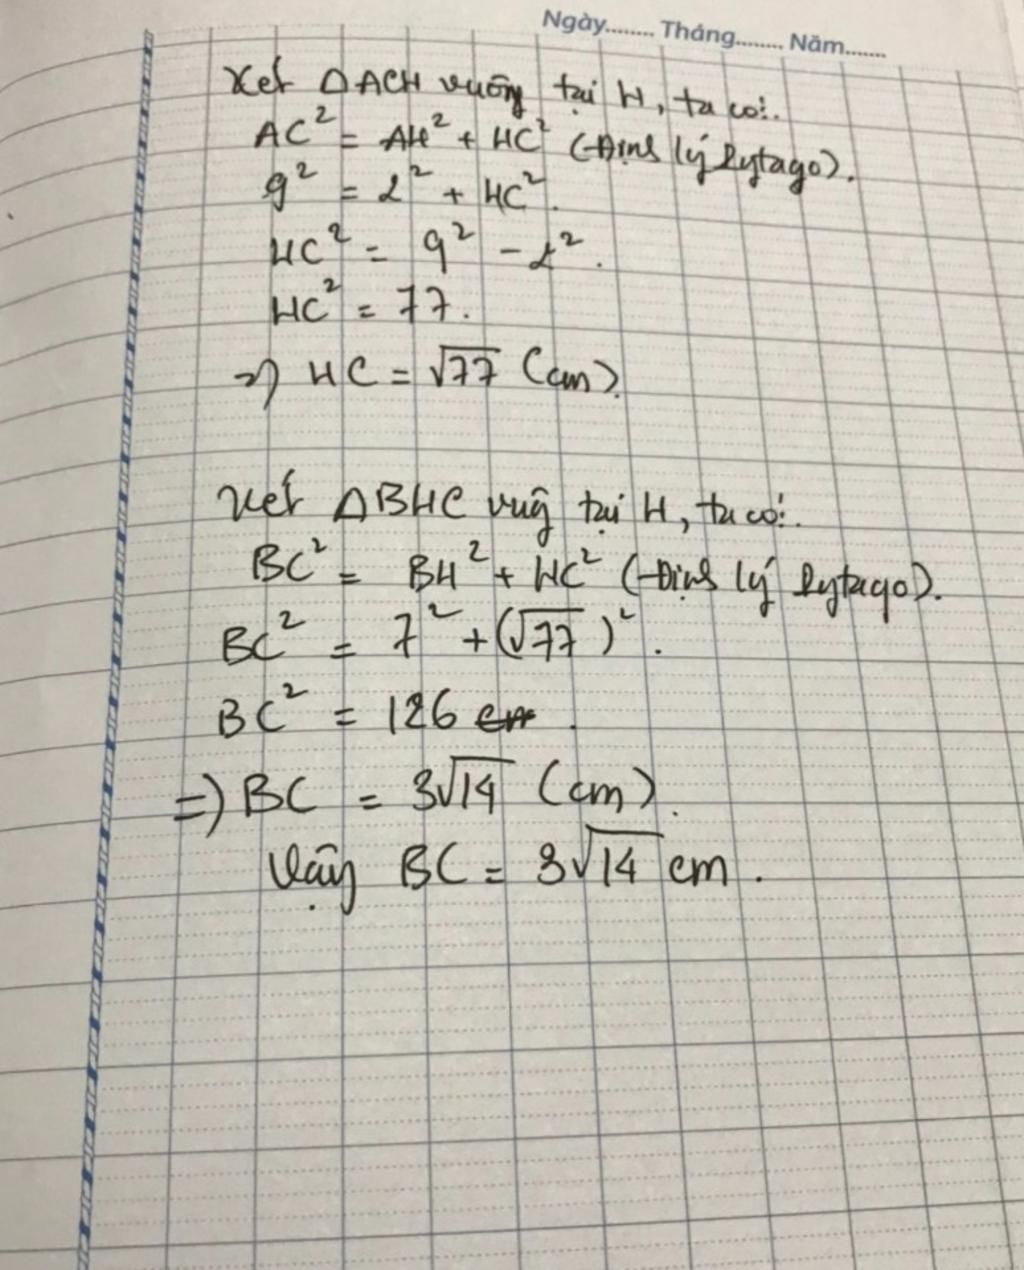 Ngày........ Tháng........ Năm.......
Xét ΔACH vuông tại H, ta có:.
AC² = AH² + HC² (Định lý Pytago).
9² = 2² + HC².
HC² = 9² - 2².
HC² = 77.
=> HC = √77 (cm).
Xét ΔBHC vug tại H, ta có:.
BC² = BH² + HC² (Định lý Pytago).
BC² = 7² + (√77)².
BC² = 126 cm.
=> BC = 3√14 (cm).
Vậy BC = 3√14 cm.